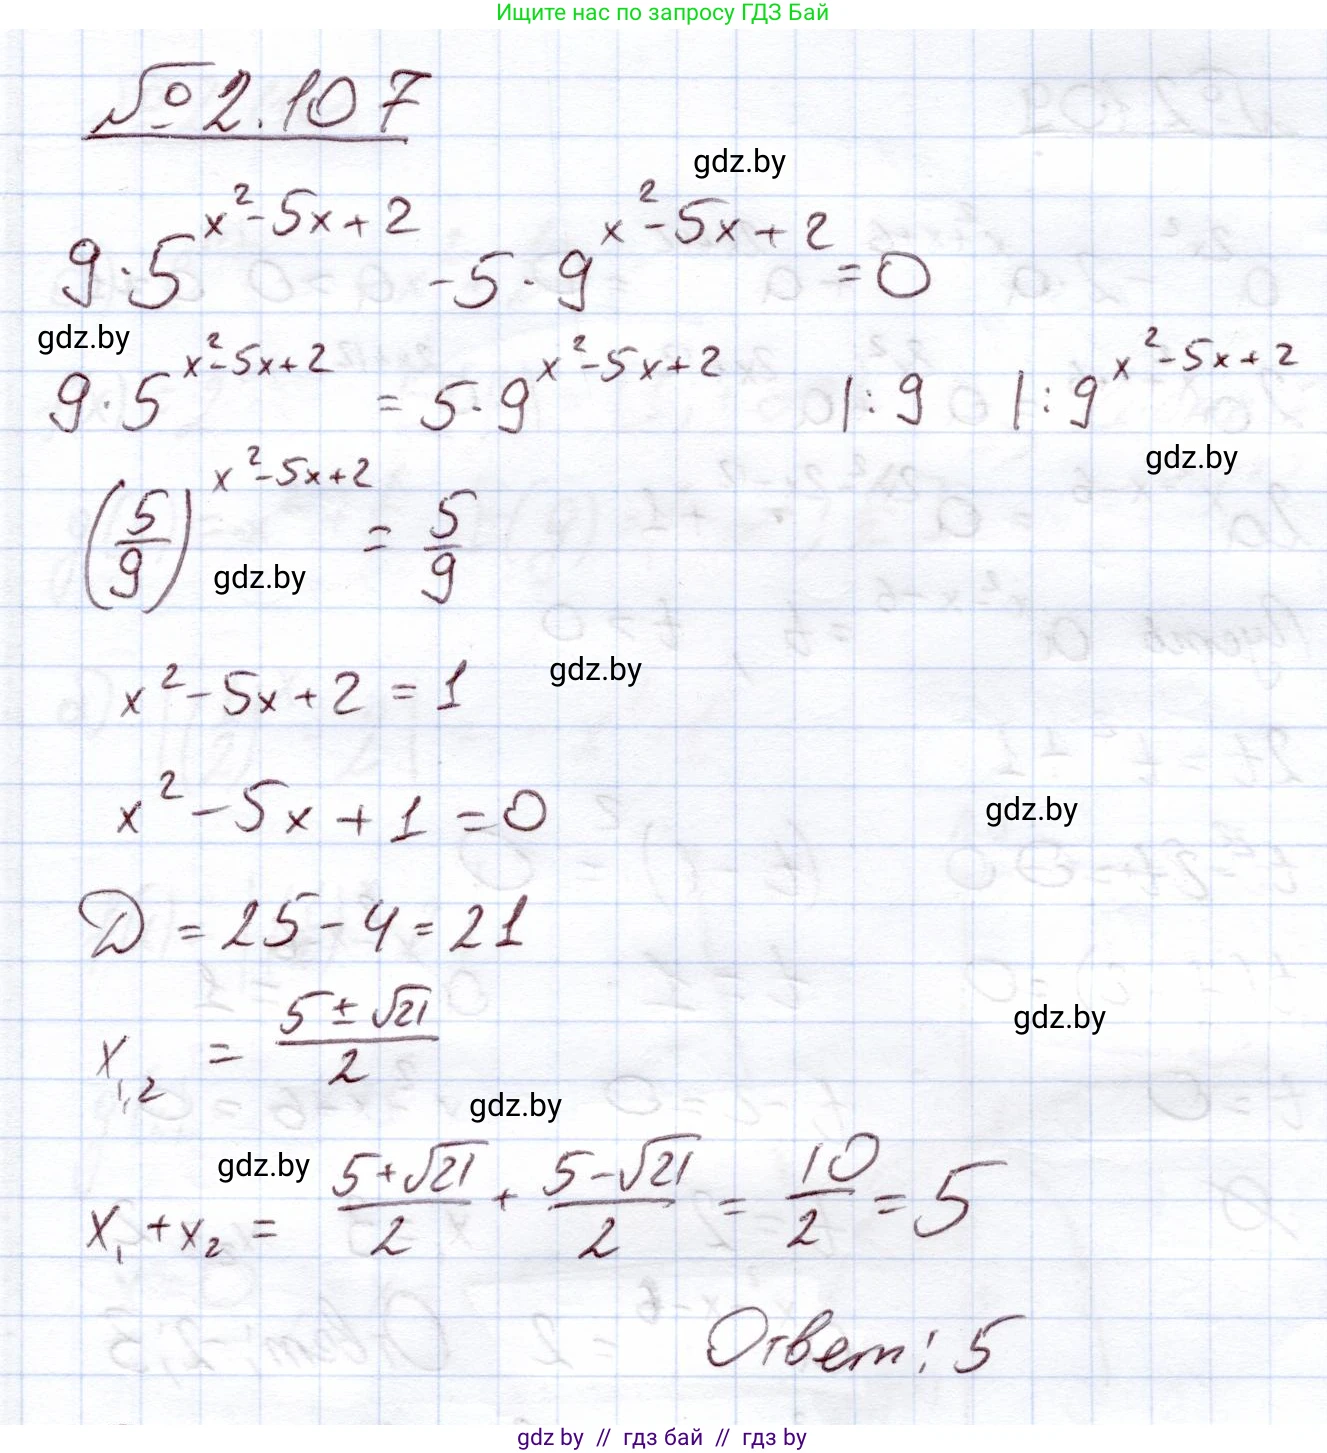 Ищите нас по запросу ГДЗ Бай
№ 2.107
gdz.by
9·5^(x²-5x+2) - 5·9^(x²-5x+2) = 0
gdz.by
9·5^(x²-5x+2) = 5·9^(x²-5x+2) |:9 |:9^(x²-5x+2)
gdz.by
(5/9)^(x²-5x+2) = 5/9
gdz.by
x²-5x+2 = 1
gdz.by
x²-5x+1 = 0
gdz.by
D = 25-4 = 21
x₁,₂ = (5±√21)/2
gdz.by
gdz.by
gdz.by
x₁+x₂ = (5+√21)/2 + (5-√21)/2 = 10/2 = 5
Ответ: 5
gdz by // гдз бай // гдз by